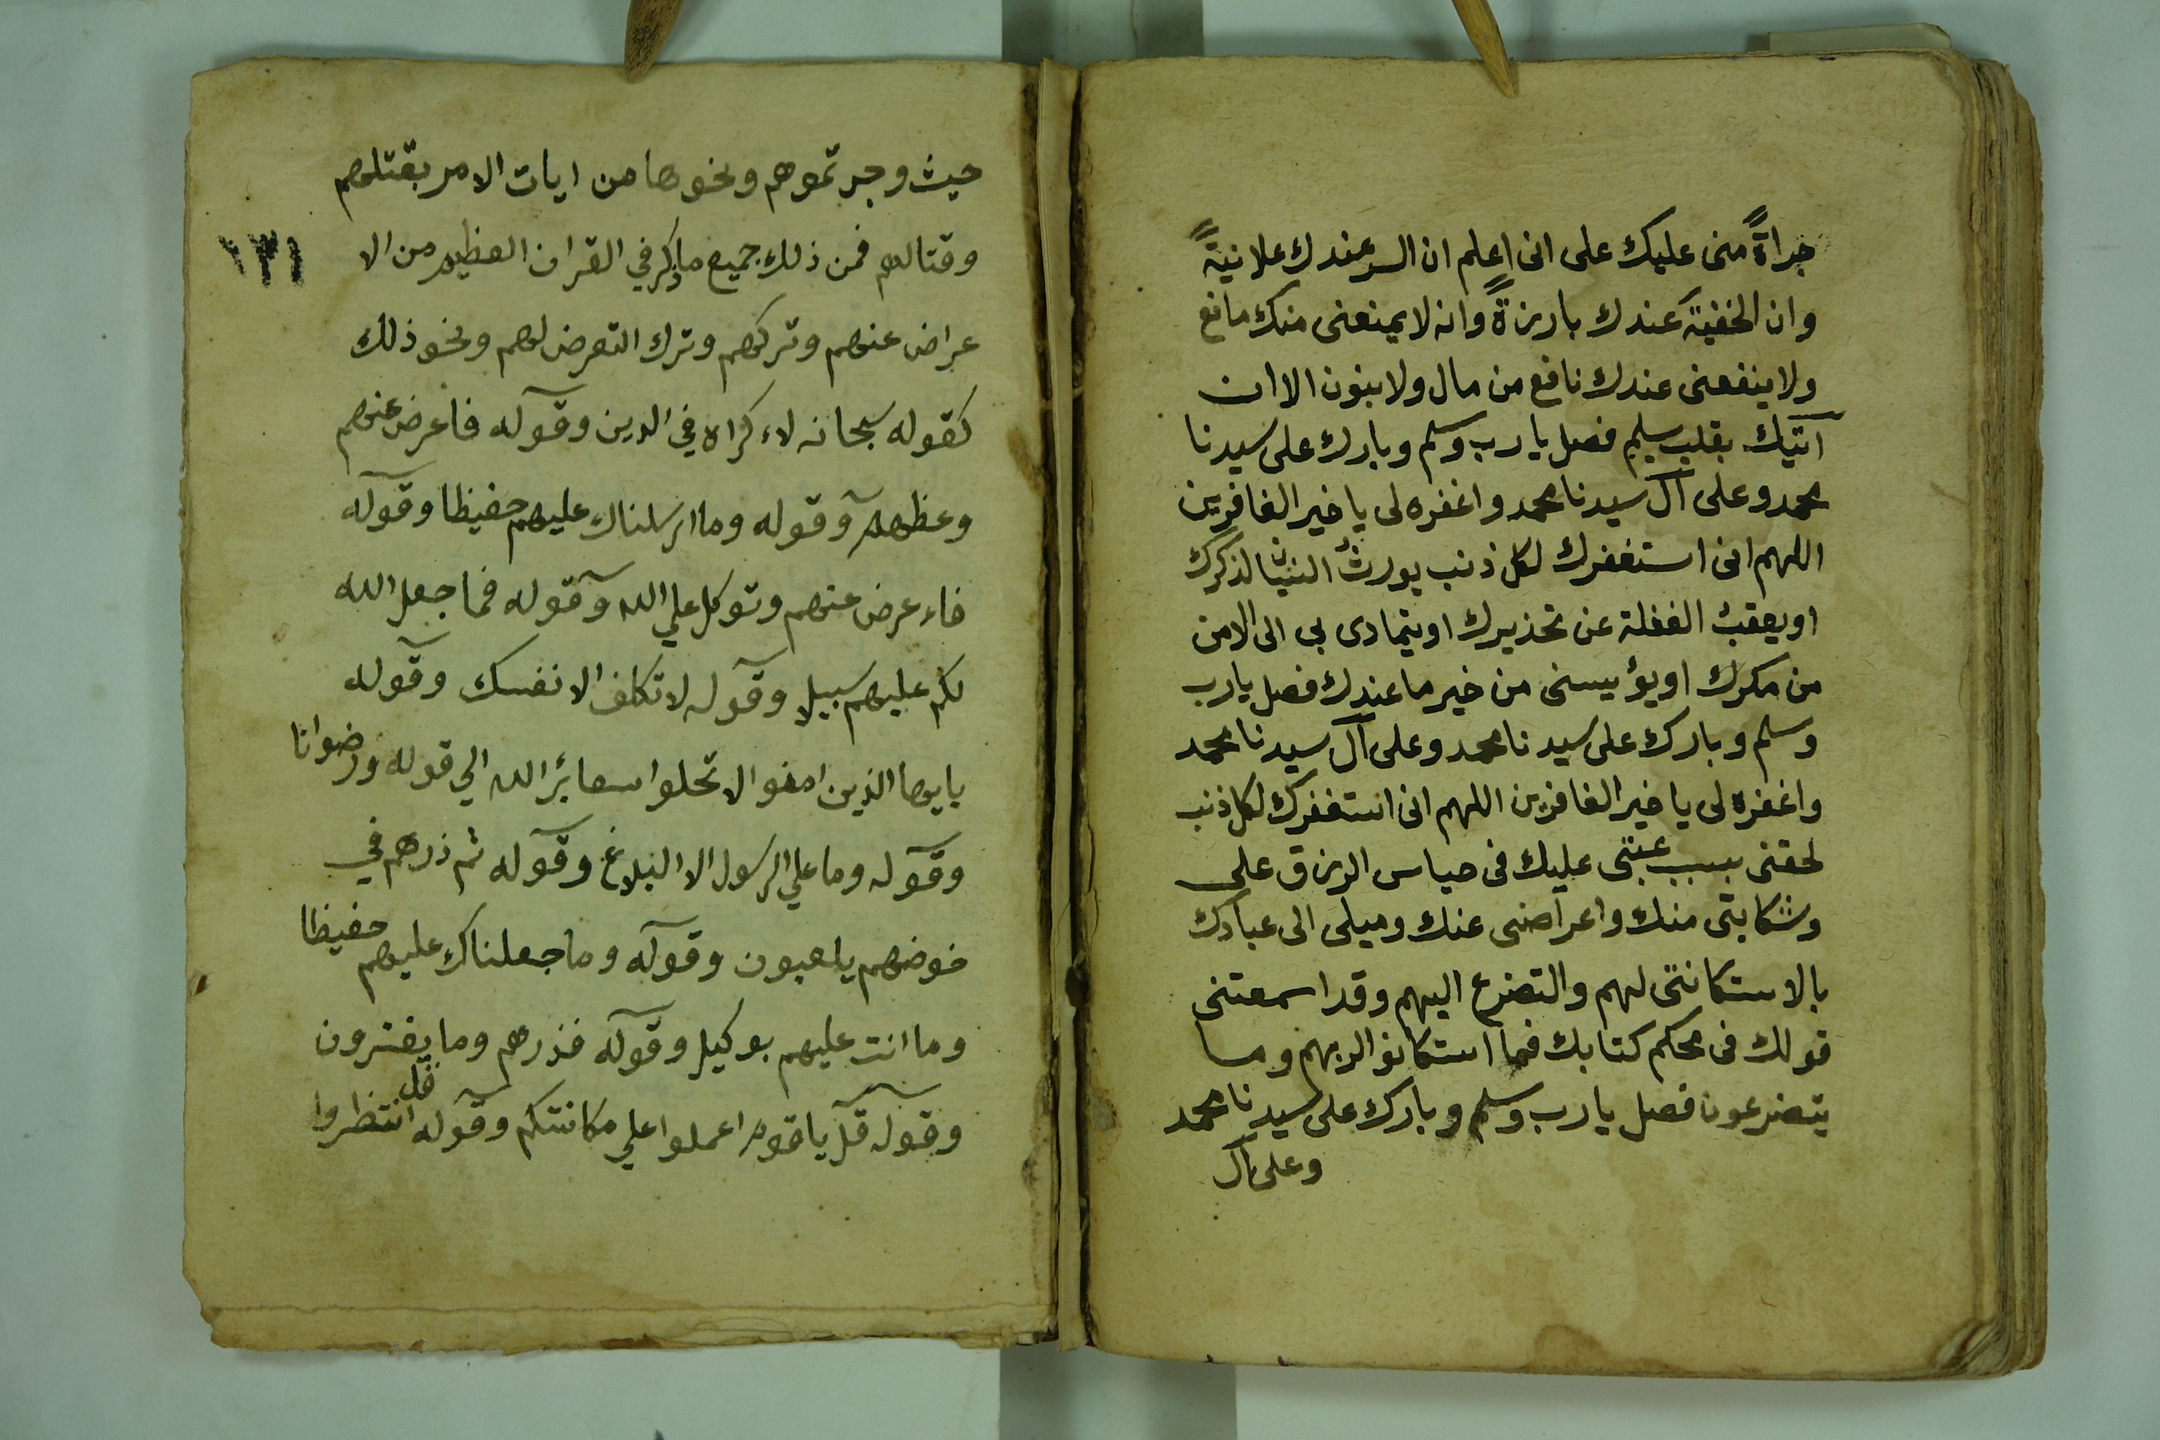 جراةً منى عليك على انى اعلم ان السر عندك علانيةً
وان الخفية عندك بارزةً وانه لا يمنعنى منك مانع
ولا ينفعنى عندك نافع من مال ولا بنون الا ان
آتيك بقلب سليم فصل يا رب وسلم وبارك على سيدنا
محمد وعلى آل سيدنا محمد واغفره لى يا خير الغافرين
اللهم انى استغفرك لكل ذنب يورث النسيان لذكرك
او يعقب الغفلة عن تحذيرك او يتمادى بى الى الامن
من مكرك او يؤيسنى من خير ما عندك فصل يا رب
وسلم وبارك على سيدنا محمد وعلى آل سيدنا محمد
واغفره لى يا خير الغافرين اللهم انى استغفرك لكل ذنب
لحقنى بسبب عتبى عليك فى حباس الرزق على
وشكايتى منك واعراضى عنك وميلى الى عبادك
بالاستكانتى لهم والتضرع اليهم وقد اسمعتنى
قولك فى محكم كتابك فما استكانوا لربهم وما
يتضرعون فصل يا رب وسلم وبارك على سيدنا محمد
وعلى آل
حيث وجد تموهم ونحوها من ايات الامر بقتلهم
وقتالهم فمن ذلك جميع ما ذكر في القران العظيم من الا
١٣١
عراض عنهم وتركهم وترك التعرض لهم ونحو ذلك
كقوله سبحانه لاء كراه في الدين وقوله فاعرض عنهم
وعظهم وقوله وما ارسلناك عليهم حفيظا وقوله
فاء عرض عنهم وتوكل علي الله وقوله فما جعل الله
لكم عليهم سبيلا وقوله لا تكلف الا نفسك وقوله
يا يها الذين امنو الا تحلوا شعائر الله الي قوله ورضوانا
وقوله وما علي الرسول الا البلاغ وقوله ثم ذرهم في
خوضهم يلعبون وقوله وما جعلناك عليهم حفيظا
وما انت عليهم بوكيل وقوله فذرهم وما يفترون
وقوله قل يا قوم اعملوا علي مكانتكم وقوله قل انتظروا